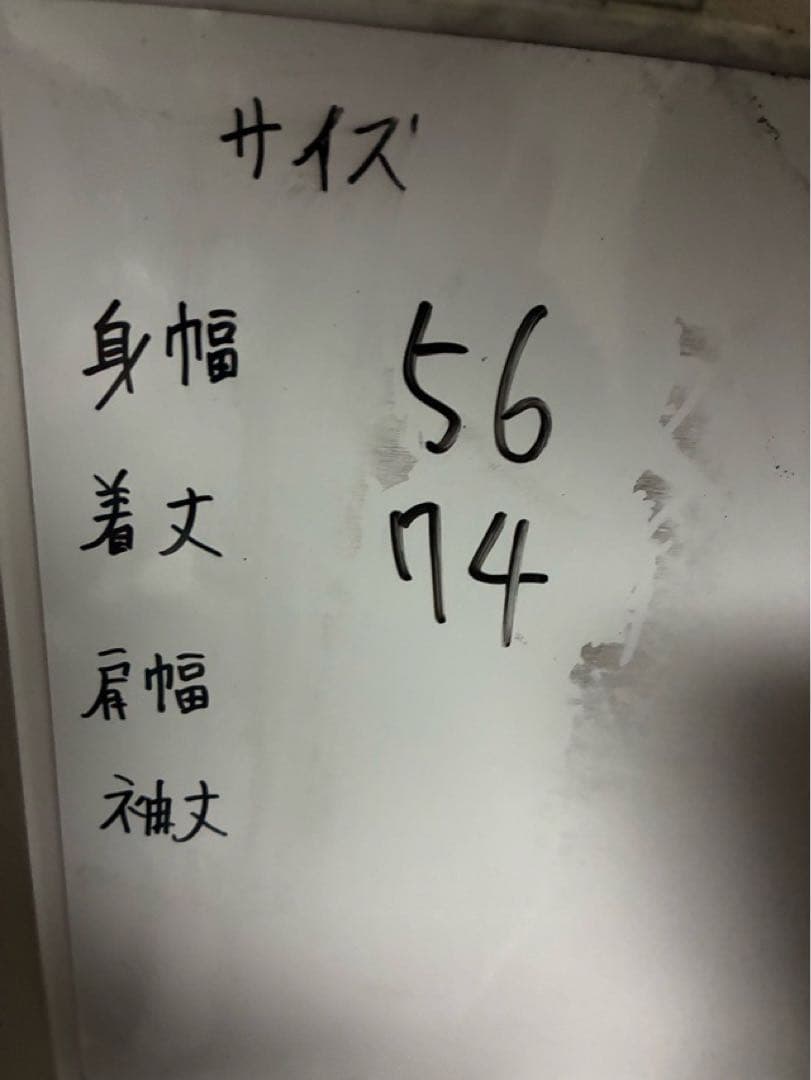 サイズ
身幅 56
着丈 74
肩幅
袖丈